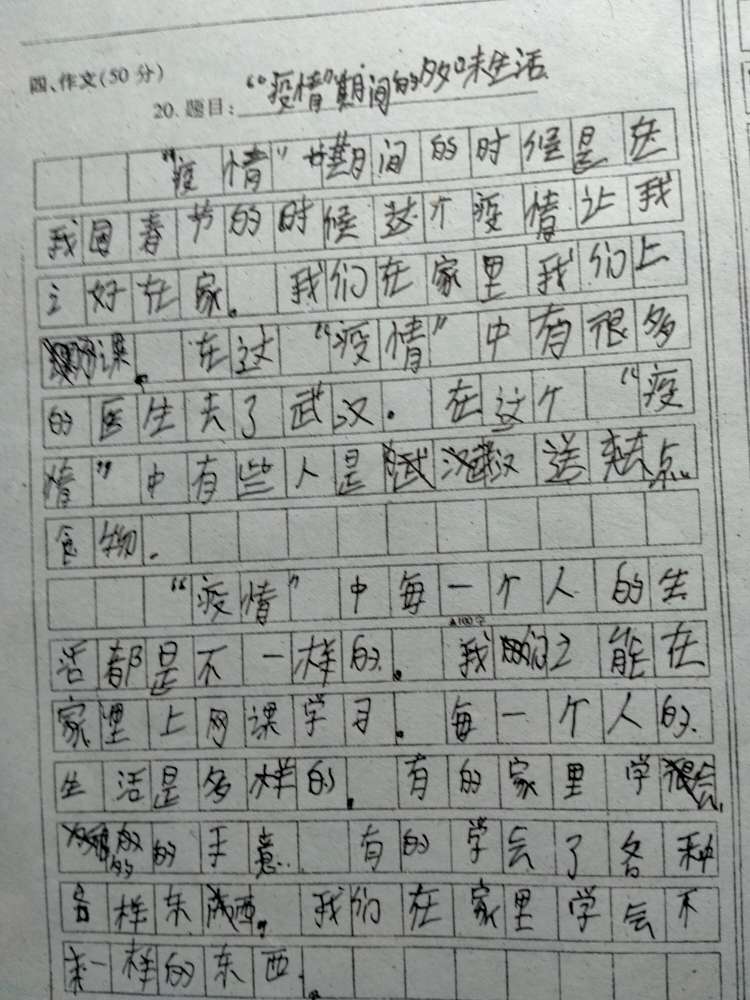 四、作文(50分)
20.题目："疫情"期间的多味生活
"疫情"期间的时候是在
我国春节的时候这个疫情让我
之好在家。我们在家里我们上
课。在这"疫情"中有很多
的医生去了武汉。在这个"疫
情"中有些人是武汉送去点
食物。
"疫情"中每一个人的生
▲100字
活都是不一样的。我们之能在
家里上网课学习。每一个人的
生活是多样的。有的家里学会
的手意。有的学会了各种
各样东西。我们在家里学会不
一样的东西。